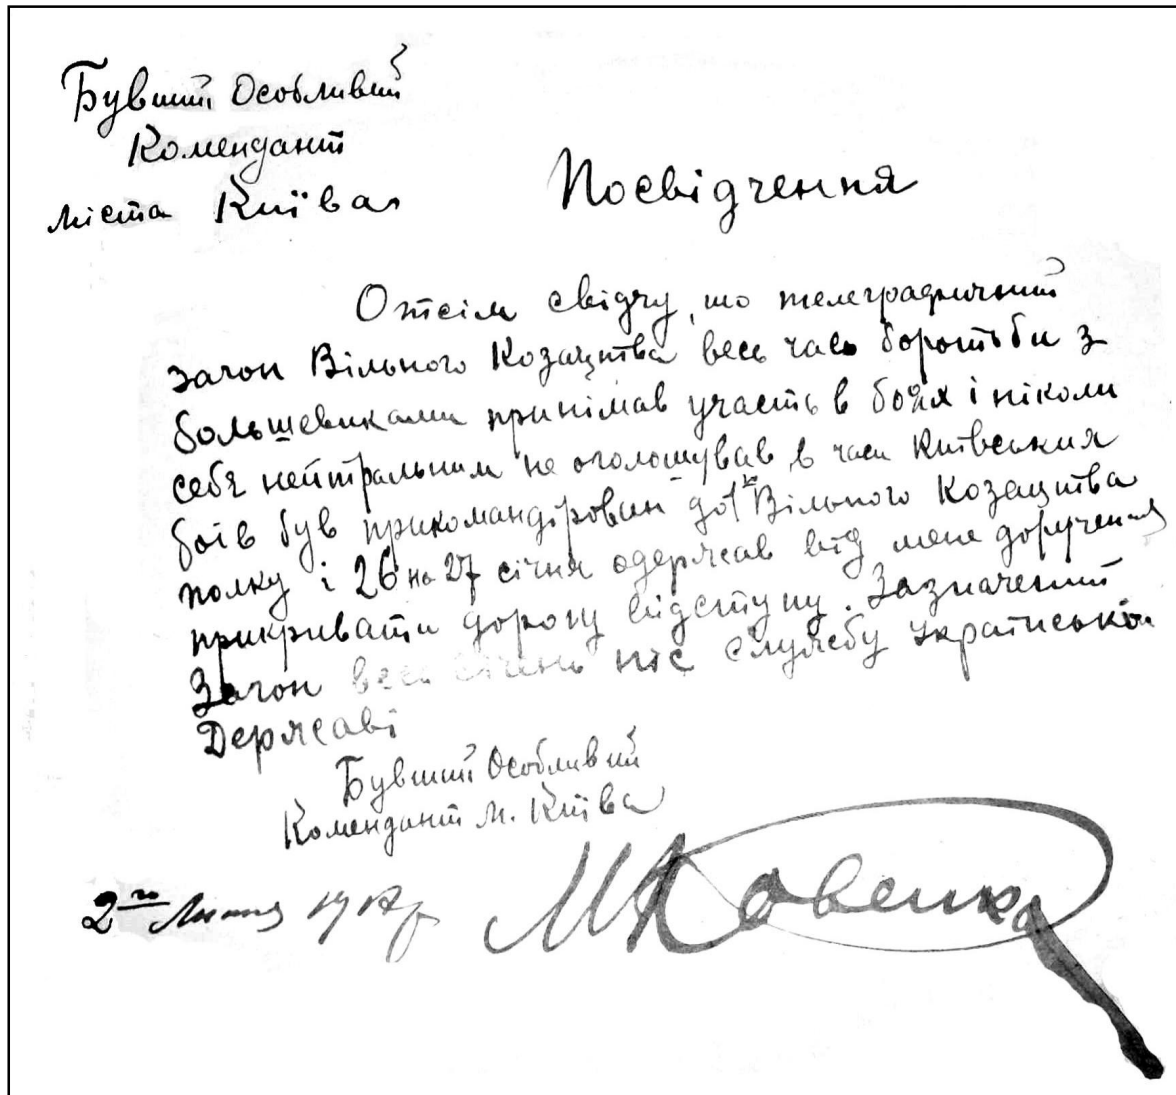 Бувший Особливий
Комендант
міста Київа
Посвідчення
Отсім свідчу, що телеграфичний
загон Вільного Козацтва весь час боротьби з
большевиками принімав участь в боях і ніколи
себя нейтральним не оголошував, в часи Київських
боїв був прикомандірован до Вільного Козацтва
полку і 26 на 27 січня одержав від мене доручення
прикривати дорогу відступу. Зазначений
Загон весь січень ніс службу Українській
Державі
Бувший Особливий
Комендант м. Київа
2го 191 р
М Ковенко